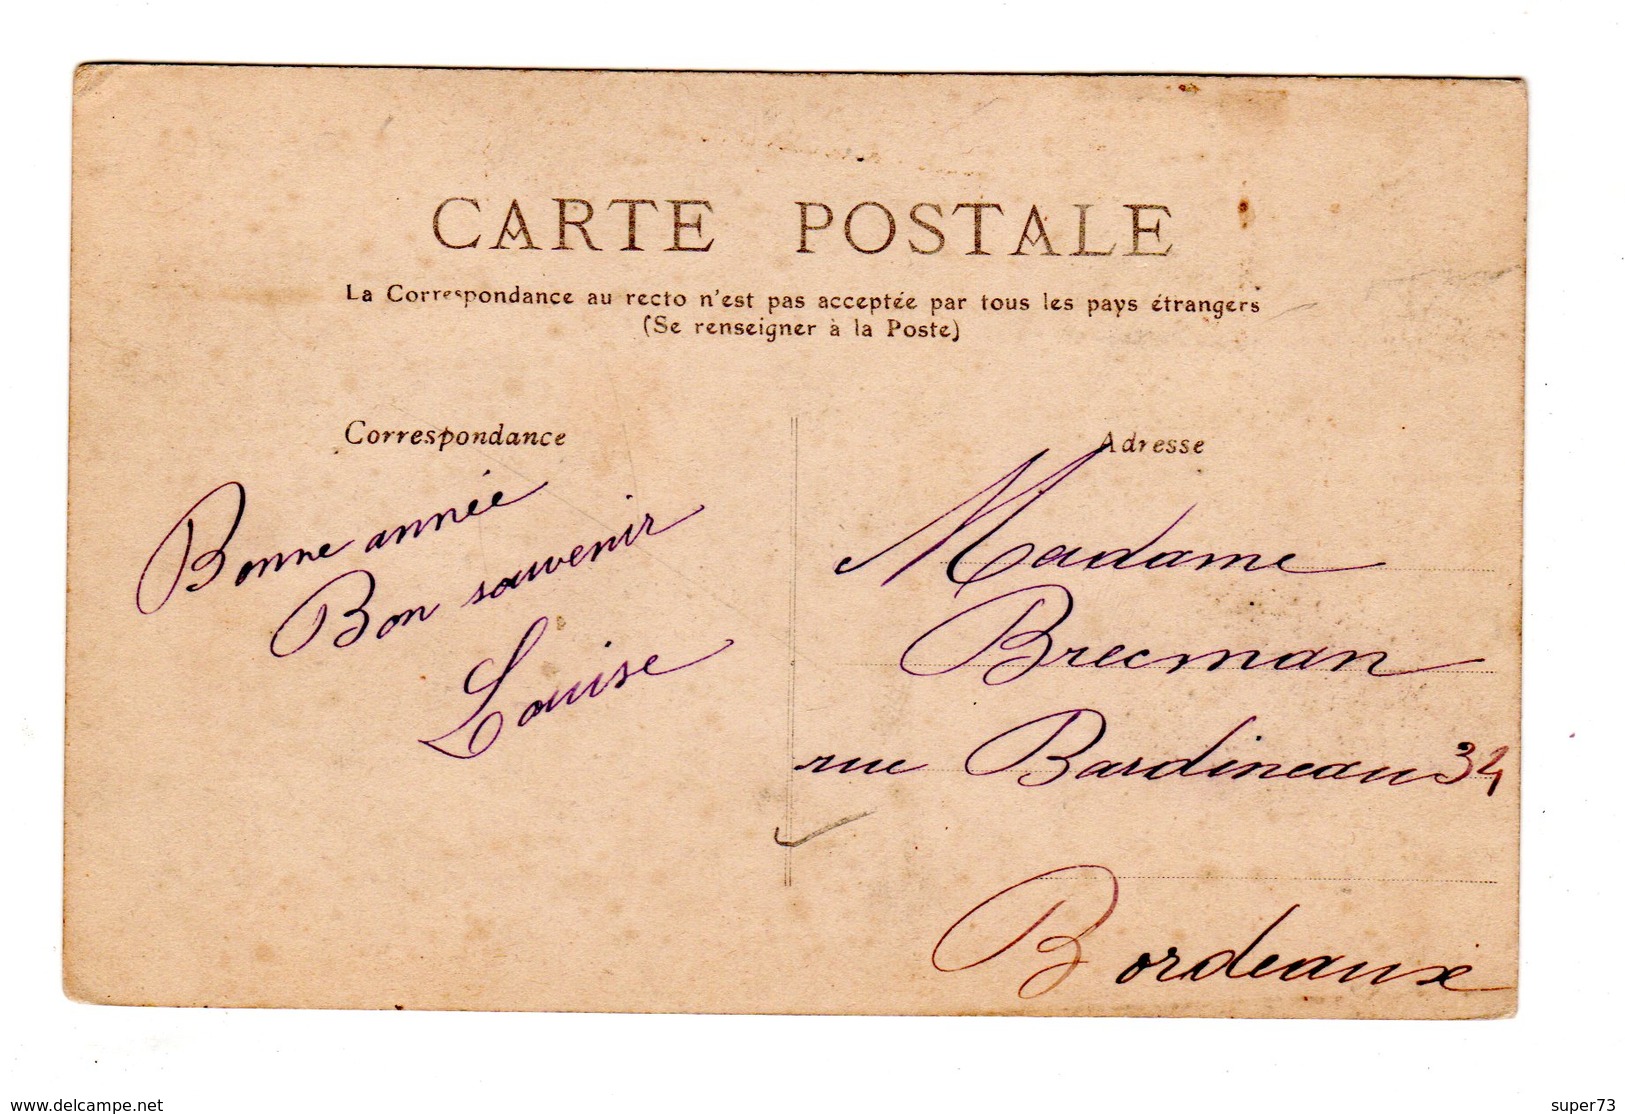 CARTE POSTALE
La Correspondance au recto n'est pas acceptée par tous les pays étrangers
(Se renseigner à la Poste)
Correspondance
Bonne année
Bon souvenir
Louise
Adresse
Madame
Brecman
rue Bardineau 34
Bordeaux
www.delcampe.net
super73